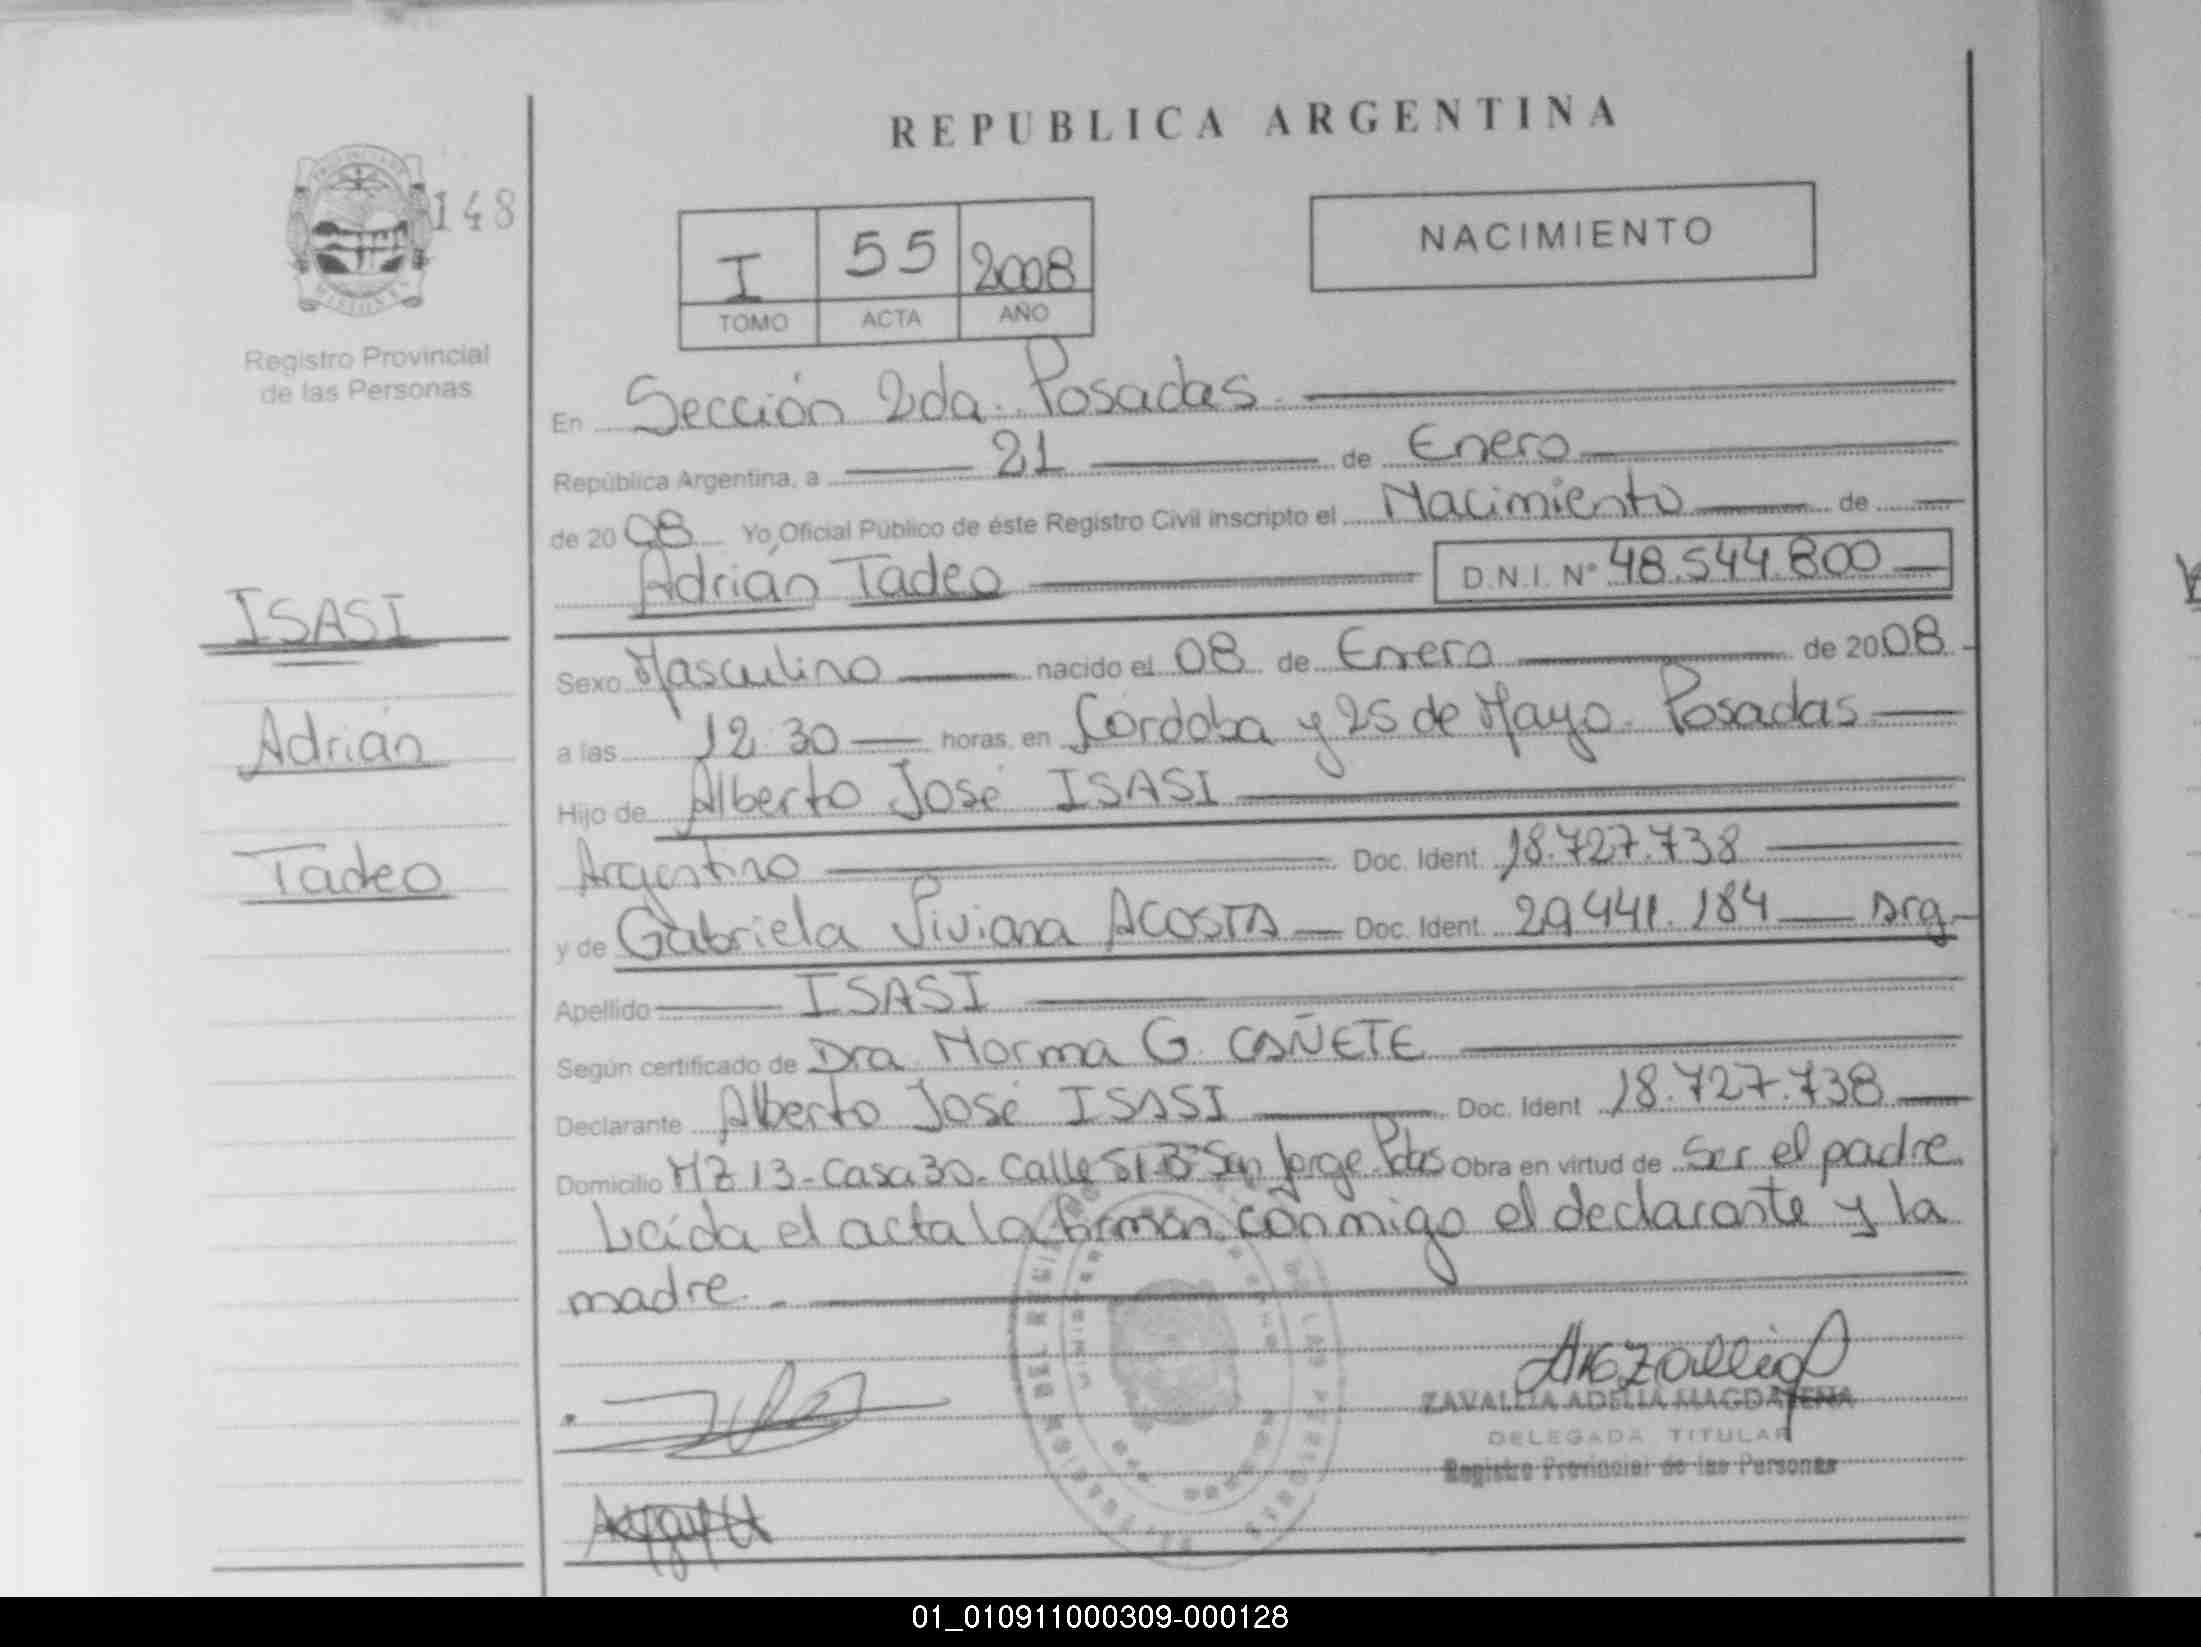 REPUBLICA ARGENTINA
148
PROVINCIA DE MISIONES
Registro Provincial
de las Personas
I 55 2008
TOMO ACTA AÑO
NACIMIENTO
En Sección 2da. Posadas.
República Argentina, a 21 de Enero
de 2008 Yo, Oficial Público de éste Registro Civil inscripto el Nacimiento de
Adrián Tadeo D.N.I. Nº 48.544.800
ISASI
Adrián
Tadeo
Sexo Masculino nacido el 08 de Enero de 2008
a las 12.30 horas, en Córdoba y 25 de Mayo. Posadas
Hijo de Alberto José ISASI
Argentino Doc. Ident. 18.727.738
y de Gabriela Viviana ACOSTA Doc. Ident. 29.441.184 Arg
Apellido ISASI
Según certificado de Dra Norma G. CAÑETE
Declarante Alberto José ISASI Doc. Ident. 18.727.738
Domicilio MZ 13-Casa 30- Calle 51 Bº San Jorge-Pdas Obra en virtud de Ser el padre
Leída el acta la firman conmigo el declarante y la
madre.
ZAVALLIA ADELIA MAGDALENA
DELEGADA TITULAR
Registro Provincial de las Personas
01_010911000309-000128